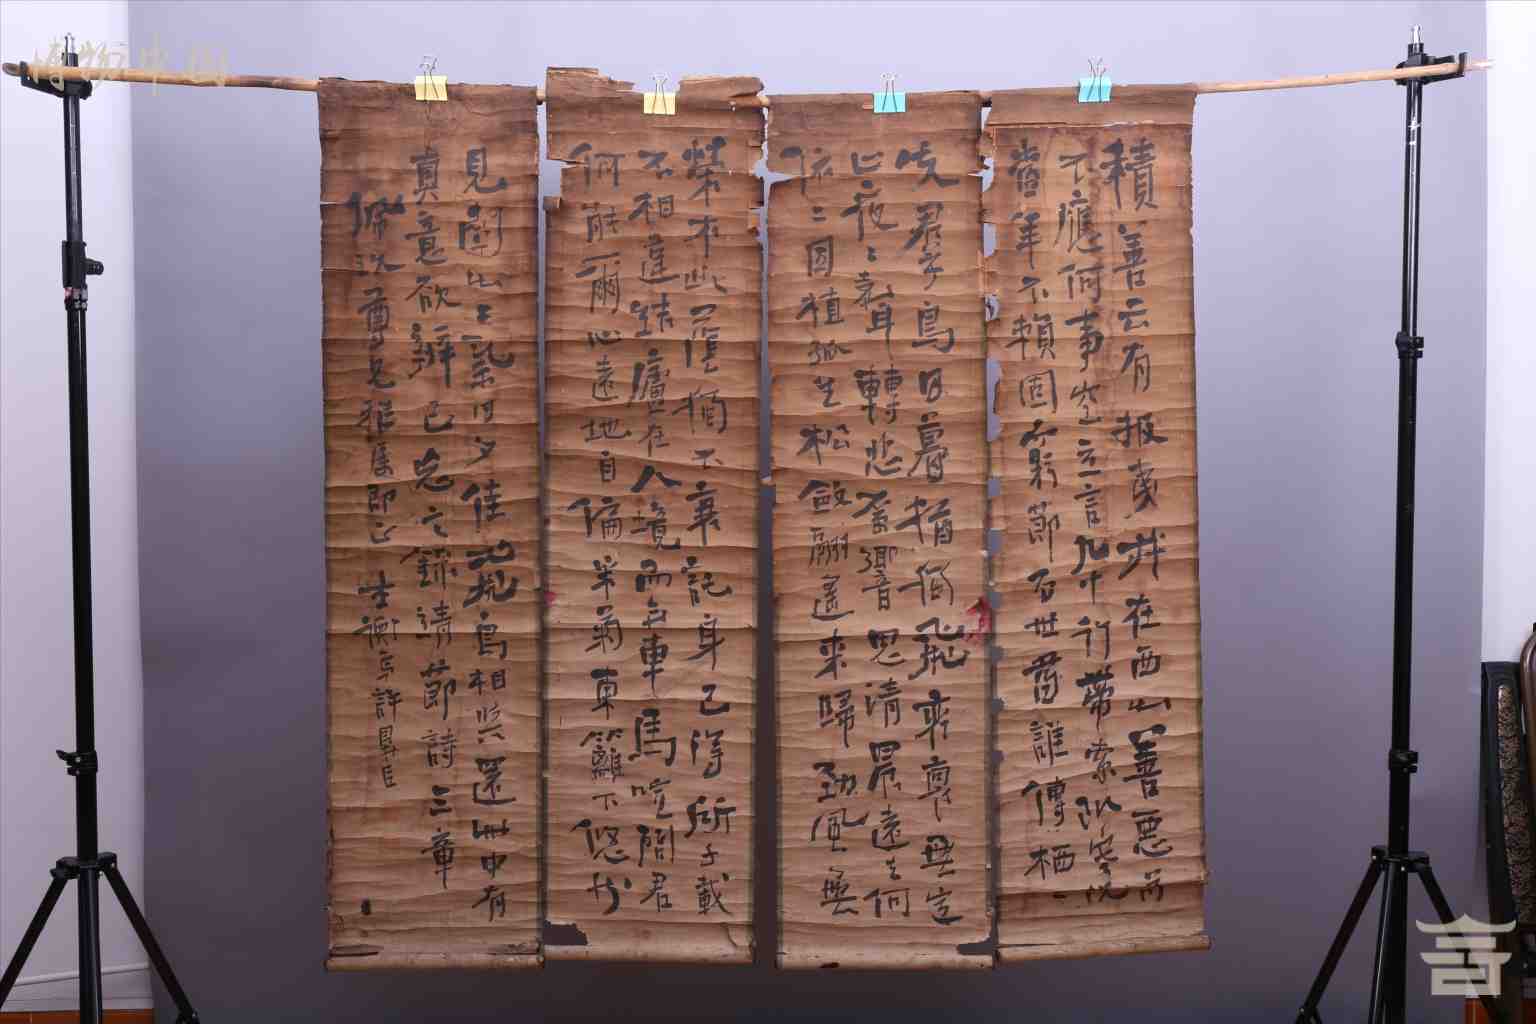 積善云有报夷叔在西山善惡苟
不應何事空立言九十行帶索飢寒况
當年不賴固窮節百世當誰傳栖〻
失羣鳥日暮猶獨飛裵褱無定
止夜〻聲轉悲厲響思清晨遠去何
依〻因植孤生松斂翮遙來歸勁風無
榮木此蔭獨不衰託身已得所千載
不相違結廬在人境而无車馬喧問君
何能爾心遠地自偏采菊東籬下悠然
見南山〻氣日夕佳飛鳥相與還此中有
真意欲辨已忘言錄靖節詩三章
尊兄雅属即正 士衡弟許
博物中国